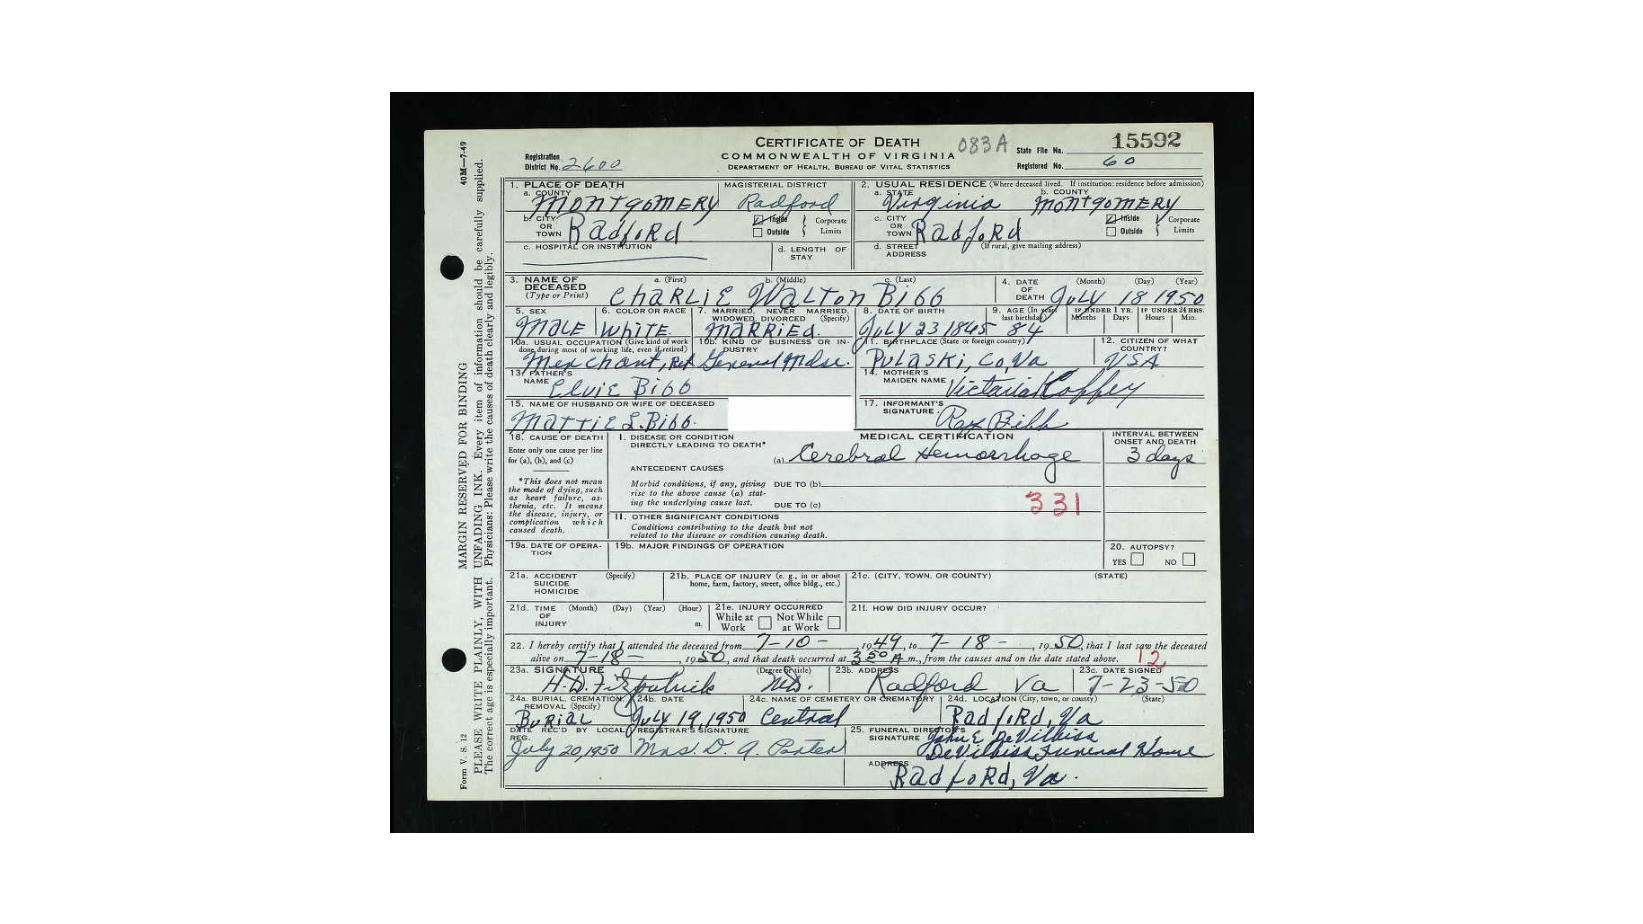 CERTIFICATE OF DEATH
COMMONWEALTH OF VIRGINIA
DEPARTMENT OF HEALTH, BUREAU OF VITAL STATISTICS
083A
State File No. 15592
Registered No. 60
Registration District No. 2600
40M—7-49
MARGIN RESERVED FOR BINDING
PLEASE WRITE PLAINLY, WITH UNFADING INK. Every item of information should be carefully supplied.
The correct age is especially important. Physicians: Please write the causes of death clearly and legibly.
Form V. S. 12
1. PLACE OF DEATH
a. COUNTY Montgomery
MAGISTERIAL DISTRICT Radford
b. CITY OR TOWN Radford
Inside Outside Corporate Limits
c. HOSPITAL OR INSTITUTION
d. LENGTH OF STAY
2. USUAL RESIDENCE (Where deceased lived. If institution: residence before admission)
a. STATE Virginia
b. COUNTY Montgomery
c. CITY OR TOWN Radford
Inside Outside Corporate Limits
d. STREET ADDRESS (If rural, give mailing address)
3. NAME OF DECEASED (Type or Print)
a. (First) Charlie b. (Middle) Walton c. (Last) Bibb
4. DATE OF DEATH (Month) (Day) (Year) July 18 1950
5. SEX Male
6. COLOR OR RACE White
7. MARRIED, NEVER MARRIED, WIDOWED, DIVORCED (Specify) Married
8. DATE OF BIRTH July 23 1865
9. AGE (In years last birthday) 84
IF UNDER 1 YR. Months Days
IF UNDER 24 HRS. Hours Min.
10a. USUAL OCCUPATION (Give kind of work done during most of working life, even if retired) Merchant, Ret
10b. KIND OF BUSINESS OR INDUSTRY General Mdse.
11. BIRTHPLACE (State or foreign country) Pulaski, Co, Va
12. CITIZEN OF WHAT COUNTRY? USA
13. FATHER'S NAME Elvie Bibb
14. MOTHER'S MAIDEN NAME Victaria Coffey
15. NAME OF HUSBAND OR WIFE OF DECEASED Mattie L. Bibb.
17. INFORMANT'S SIGNATURE: Ray Bibb
18. CAUSE OF DEATH
Enter only one cause per line for (a), (b), and (c)
*This does not mean the mode of dying, such as heart failure, asthenia, etc. It means the disease, injury, or complication which caused death.
MEDICAL CERTIFICATION
INTERVAL BETWEEN ONSET AND DEATH
I. DISEASE OR CONDITION DIRECTLY LEADING TO DEATH*
(a) Cerebral Hemorrhage 3 days
ANTECEDENT CAUSES
Morbid conditions, if any, giving rise to the above cause (a) stating the underlying cause last.
DUE TO (b)
DUE TO (c)
331
II. OTHER SIGNIFICANT CONDITIONS
Conditions contributing to the death but not related to the disease or condition causing death.
19a. DATE OF OPERATION
19b. MAJOR FINDINGS OF OPERATION
20. AUTOPSY?
YES NO
21a. ACCIDENT SUICIDE HOMICIDE (Specify)
21b. PLACE OF INJURY (e. g., in or about home, farm, factory, street, office bldg., etc.)
21c. (CITY, TOWN, OR COUNTY) (STATE)
21d. TIME OF INJURY (Month) (Day) (Year) (Hour) m.
21e. INJURY OCCURRED While at Work Not While at Work
21f. HOW DID INJURY OCCUR?
22. I hereby certify that I attended the deceased from 7-10-, 1949, to 7-18-, 1950, that I last saw the deceased
alive on 7-18-, 1950, and that death occurred at 3 50 A m., from the causes and on the date stated above. 12
23a. SIGNATURE H. D. Fitzpatrick (Degree or title) M.D.
23b. ADDRESS Radford Va
23c. DATE SIGNED 7-23-50
24a. BURIAL, CREMATION, REMOVAL (Specify) Burial
24b. DATE July 19, 1950
24c. NAME OF CEMETERY OR CREMATORY Central
24d. LOCATION (City, town, or county) (State) Radford, Va
DATE REC'D BY LOCAL REG. July 20, 1950
REGISTRAR'S SIGNATURE Mrs. D. A. Porter
25. FUNERAL DIRECTOR'S SIGNATURE John E DeVilbiss
DeVilbiss Funeral Home
ADDRESS Radford, Va.